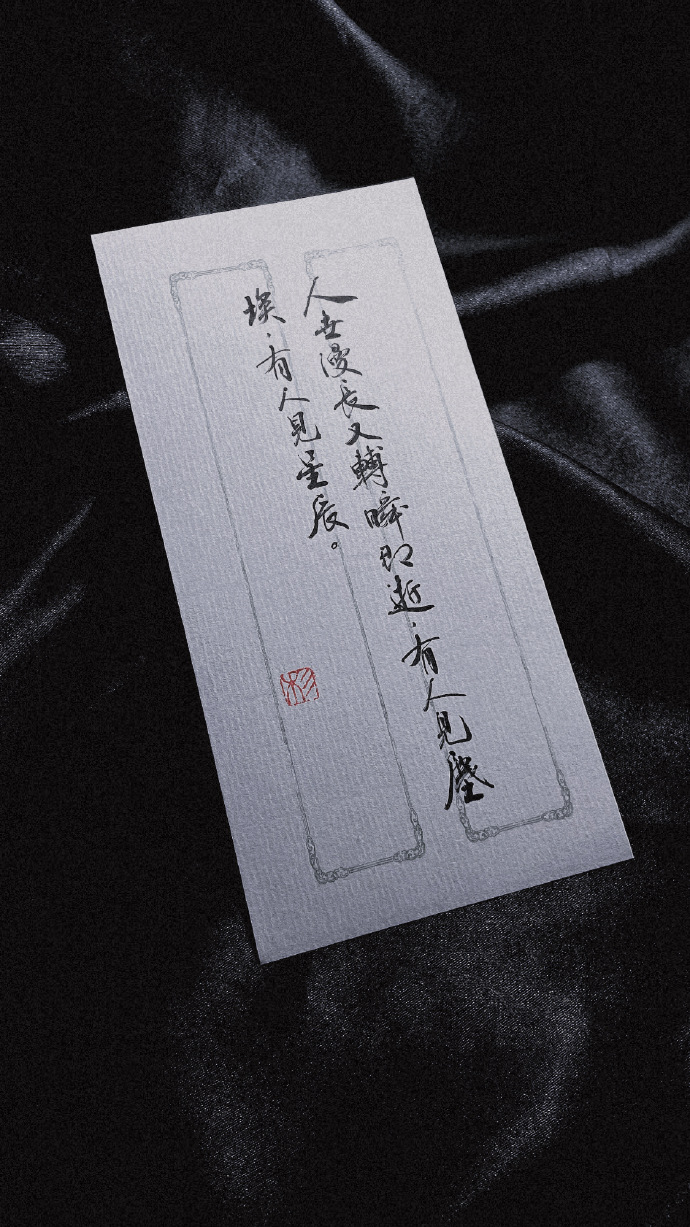 人世漫長又轉瞬即逝，有人見塵
埃，有人見星辰。
杉